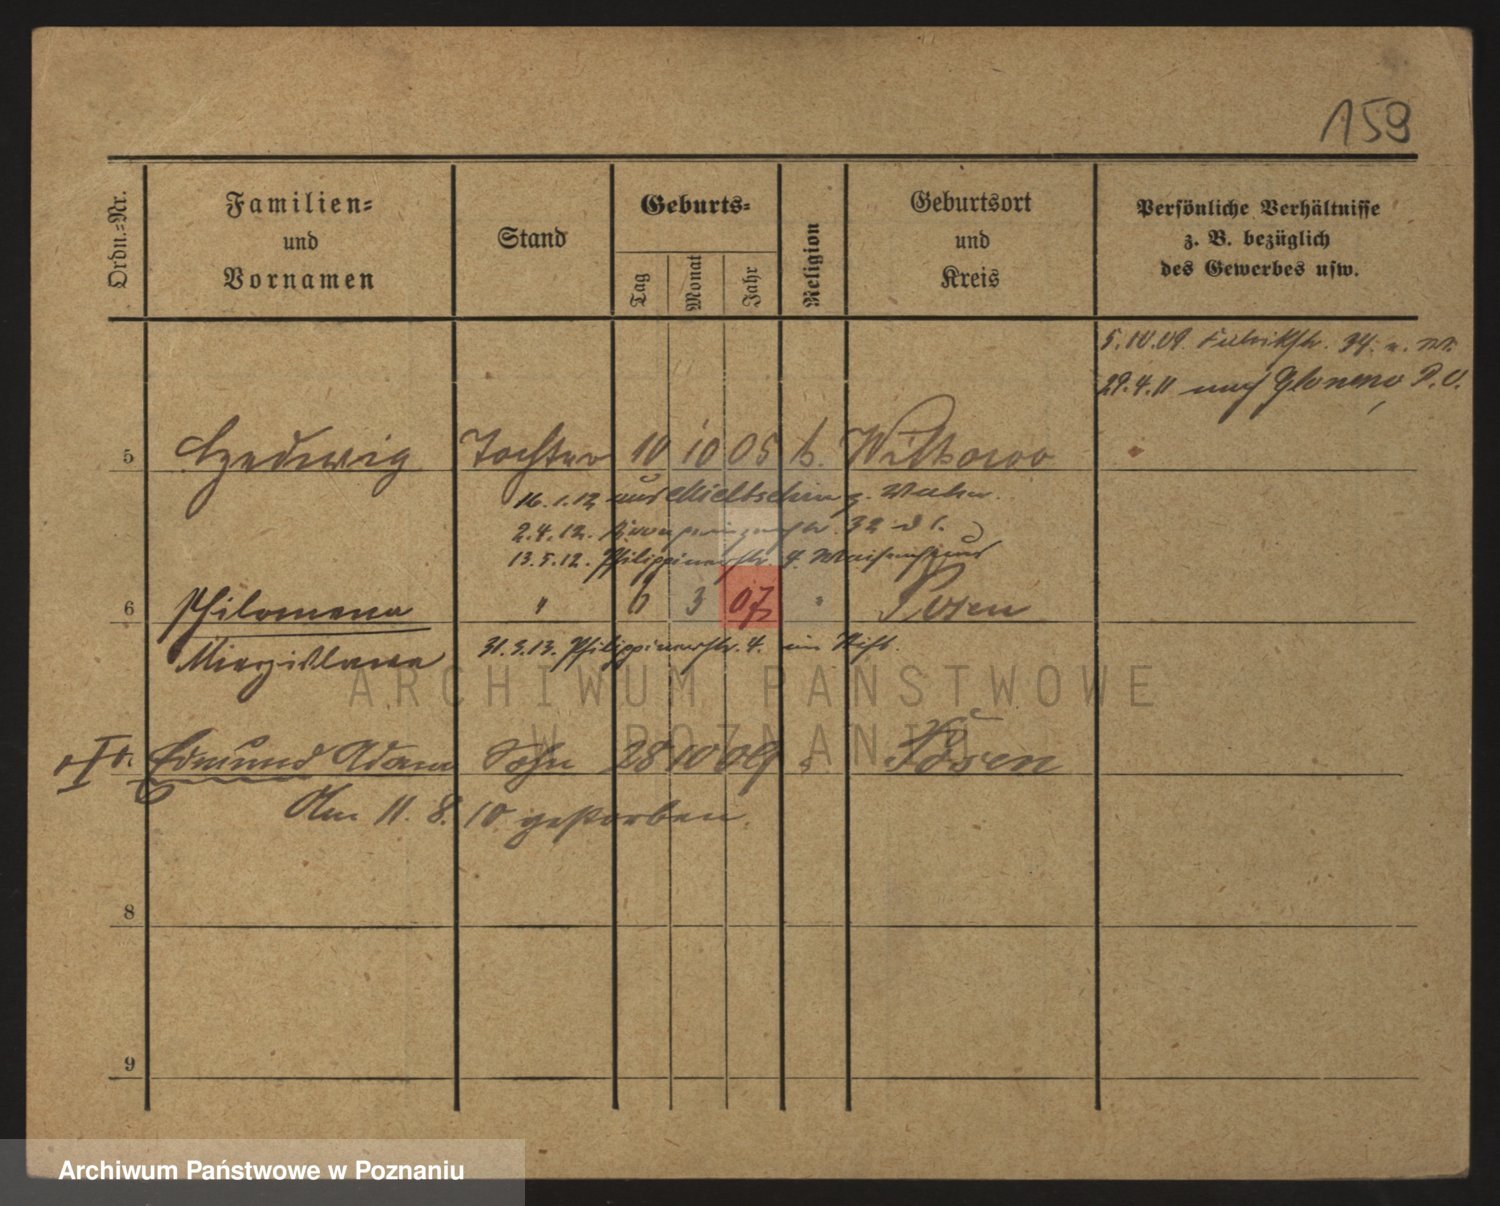 159
Ordn.-Nr.
Familien-
und
Vornamen
Stand
Geburts-
Tag
Monat
Jahr
Religion
Geburtsort
und
Kreis
Persönliche Verhältnisse
z. B. bezüglich
des Gewerbes usw.
5.10.09. Fabrikstr. 34.
29.4.11 nach P. O.
5 Hedwig Tochter 10 10 05 k. Witkowo
16.1.12 aus Mieltschin
2.4.12. 32
13.5.12. Philippinenstr. 4. Waisenhaus
6 Philomena " 6 3 07 " Posen
Mieczislawa 31.3.13. Philippinenstr. 4. im Stift.
ARCHIWUM PAŃSTWOWE
W POZNANIU
Edmund Adam Sohn 28 10 09 " Posen
Am 11. 8. 10 gestorben.
8
9
Archiwum Państwowe w Poznaniu